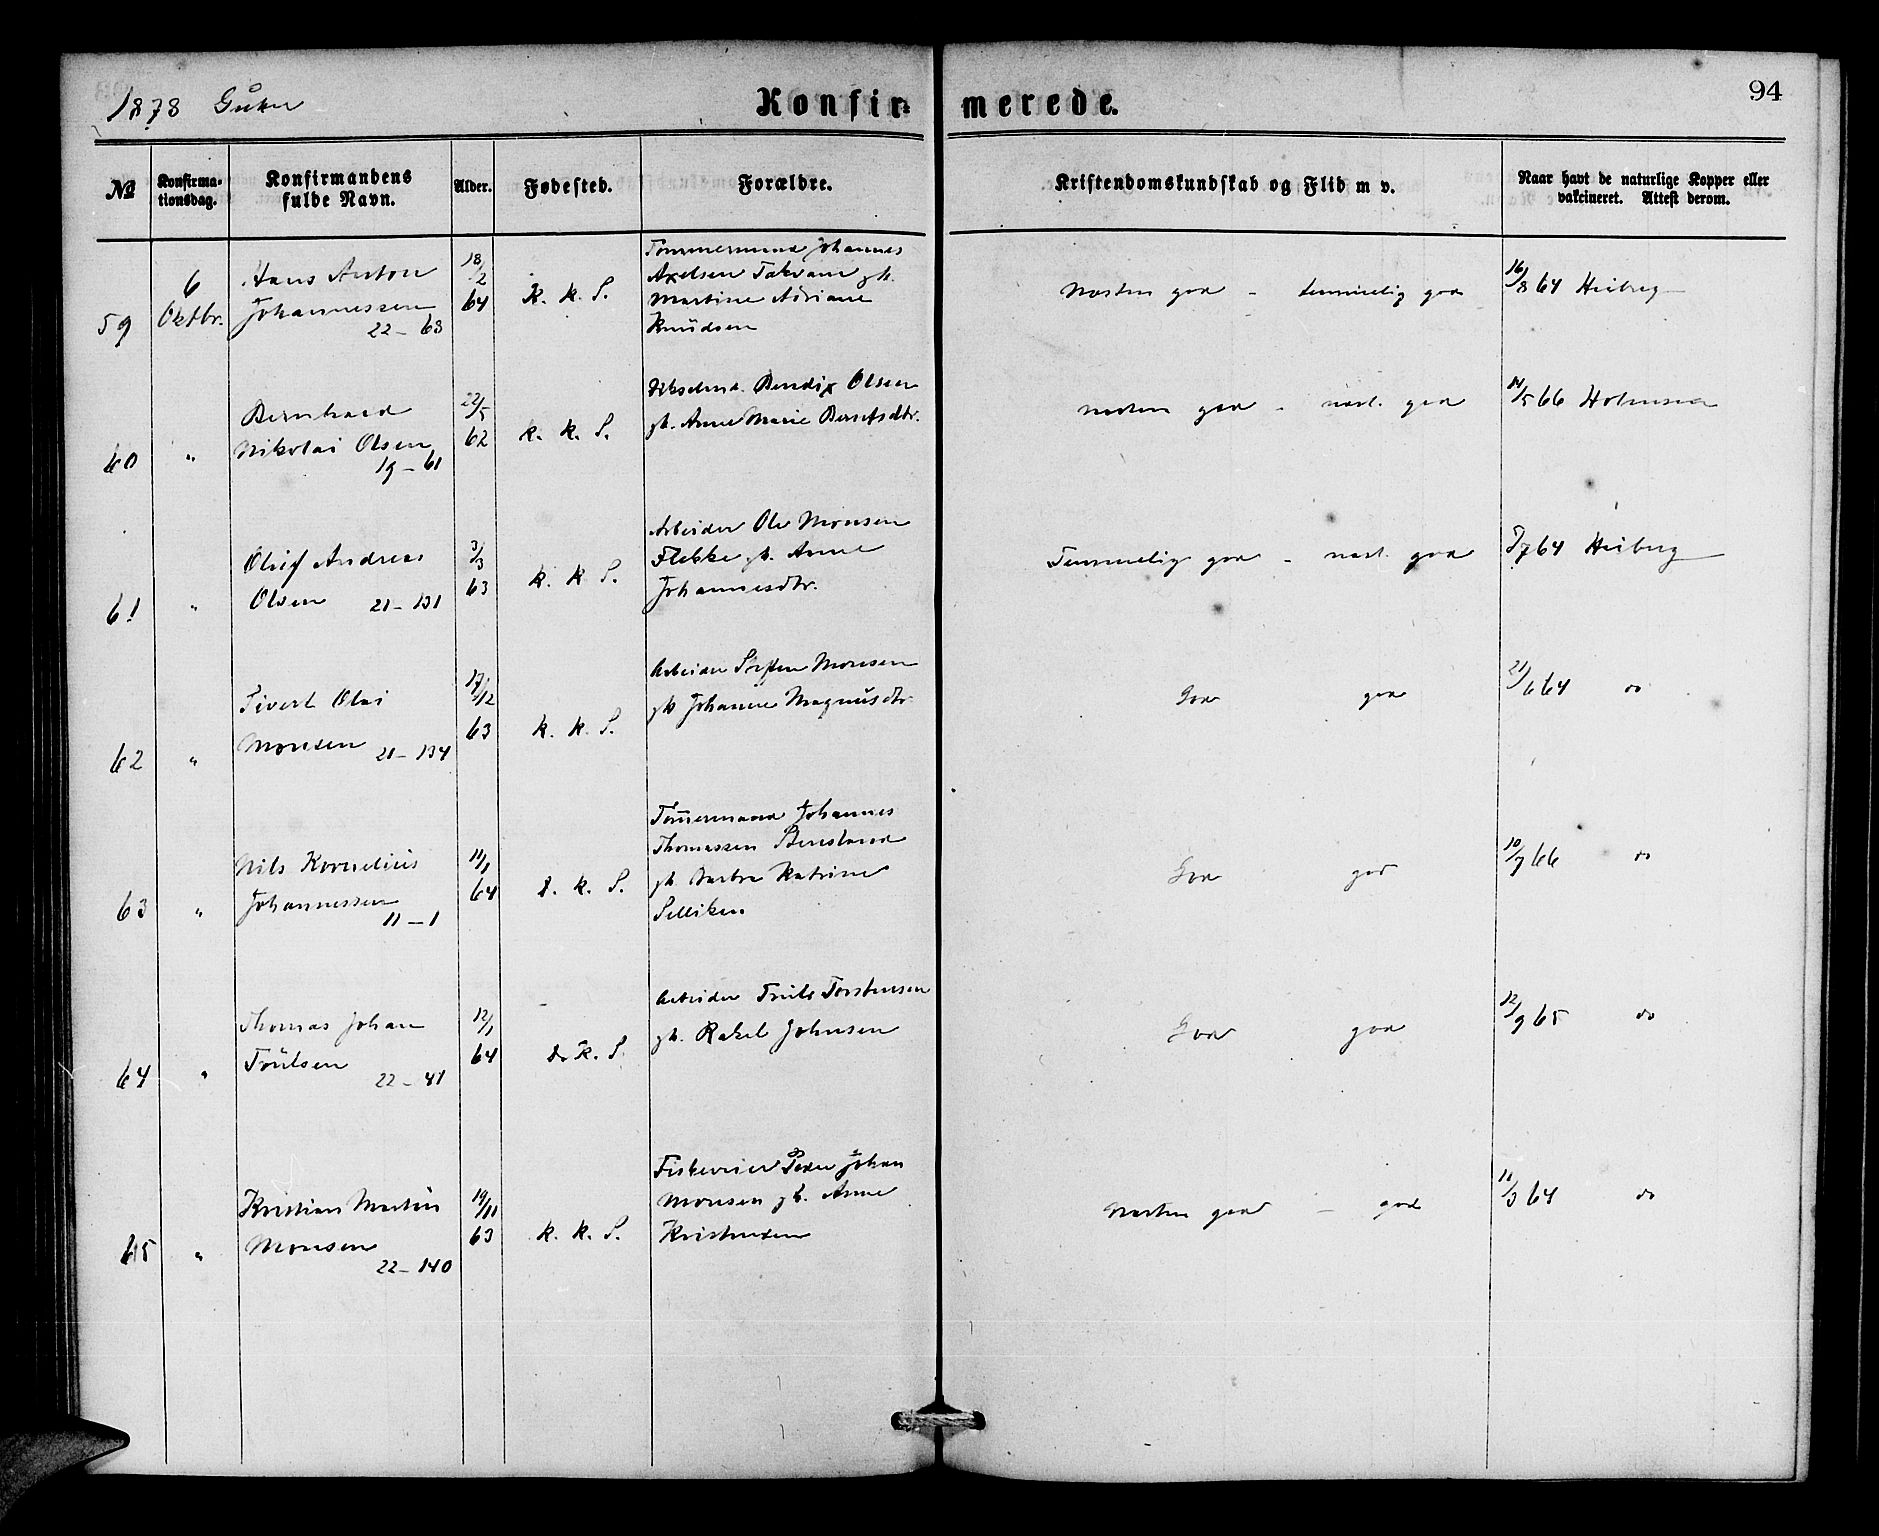 1878 Gutter
Konfirmerede.
94
No
Konfirmationsdag.
Konfirmandens fulde Navn.
Alder.
Fødested.
Forældre.
Kristendomskundskab og Flid m v.
Naar havt de naturlige Kopper eller vakcineret. Attest derom.
59
6 Oktbr.
Hans Anton
Johannessen
22 – 63
18/2 64
K. K. S.
Tømmermand Johannes
Axelsen Takvam gh.
Martine Adriane
Knudsen
Næsten god – temmelig god
16/8 64 Heiberg
60
"
Bernhard
Nikolai Olsen
19 – 61
22/5 62
K. K. S.
Bendix Olsen
gh. Anne Marie Berntsdtr.
næsten god – næst. god
14/5 66
61
"
Oluf Andreas
Olsen 21 – 131
3/3 63
K. K S.
Arbeider Ole Monsen
Flekke gh. Anne
Johannesdtr.
Temmelig god – næst. god
8/7 64 Heiberg
62
"
Sivert Olai
Monsen 21 – 134
17/12 63
K. K. S.
Arbeider Steffen Monsen
gh Johanne Magnusdtr
God god
21/6 64 do
63
"
Nils Kornelius
Johannessen
11 – 1
11/1 64
d. K. S.
Tømermand Johannes
Thomassen Stensland
gh. Katrine
Selliken
God god
10/7 66 do
64
"
Thomas Johan
Trulsen
22 – 41
12/1 64
d. K. S.
Arbeider Truls Torstensen
gh. Rakel Johnsen
God god
12/9 65 do
65
"
Kristian Martin
Monsen
22 – 140
19/11 63
K. K. S.
Peder Johan
Monsen gh. Anne
Kristensen
Næsten god – god
11/3 64 do